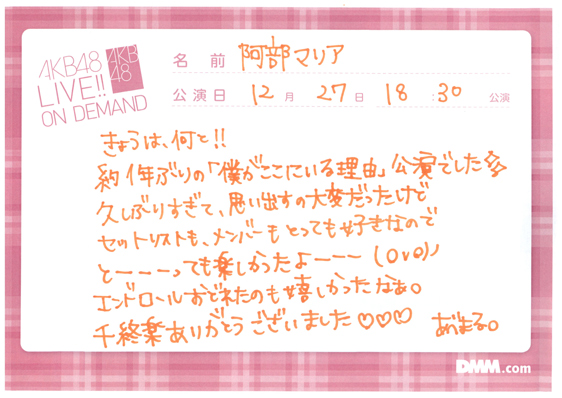 AKB48
LIVE!!
ON DEMAND
AKB
48
名前 阿部マリア
公演日 12月 27日 18:30 公演
きょうは、何と!!
約1年ぶりの「僕がここにいる理由」公演でした☆
久しぶりすぎて、思い出すの大変だったけど
セットリストも、メンバーもとっても好きなので
とーーーっても楽しかったよーーー(OvO)ノ
エンドロールおどれたのも嬉しかったなぁ。
千終楽ありがとうございました♡♡♡ あべまる。
DMM.com